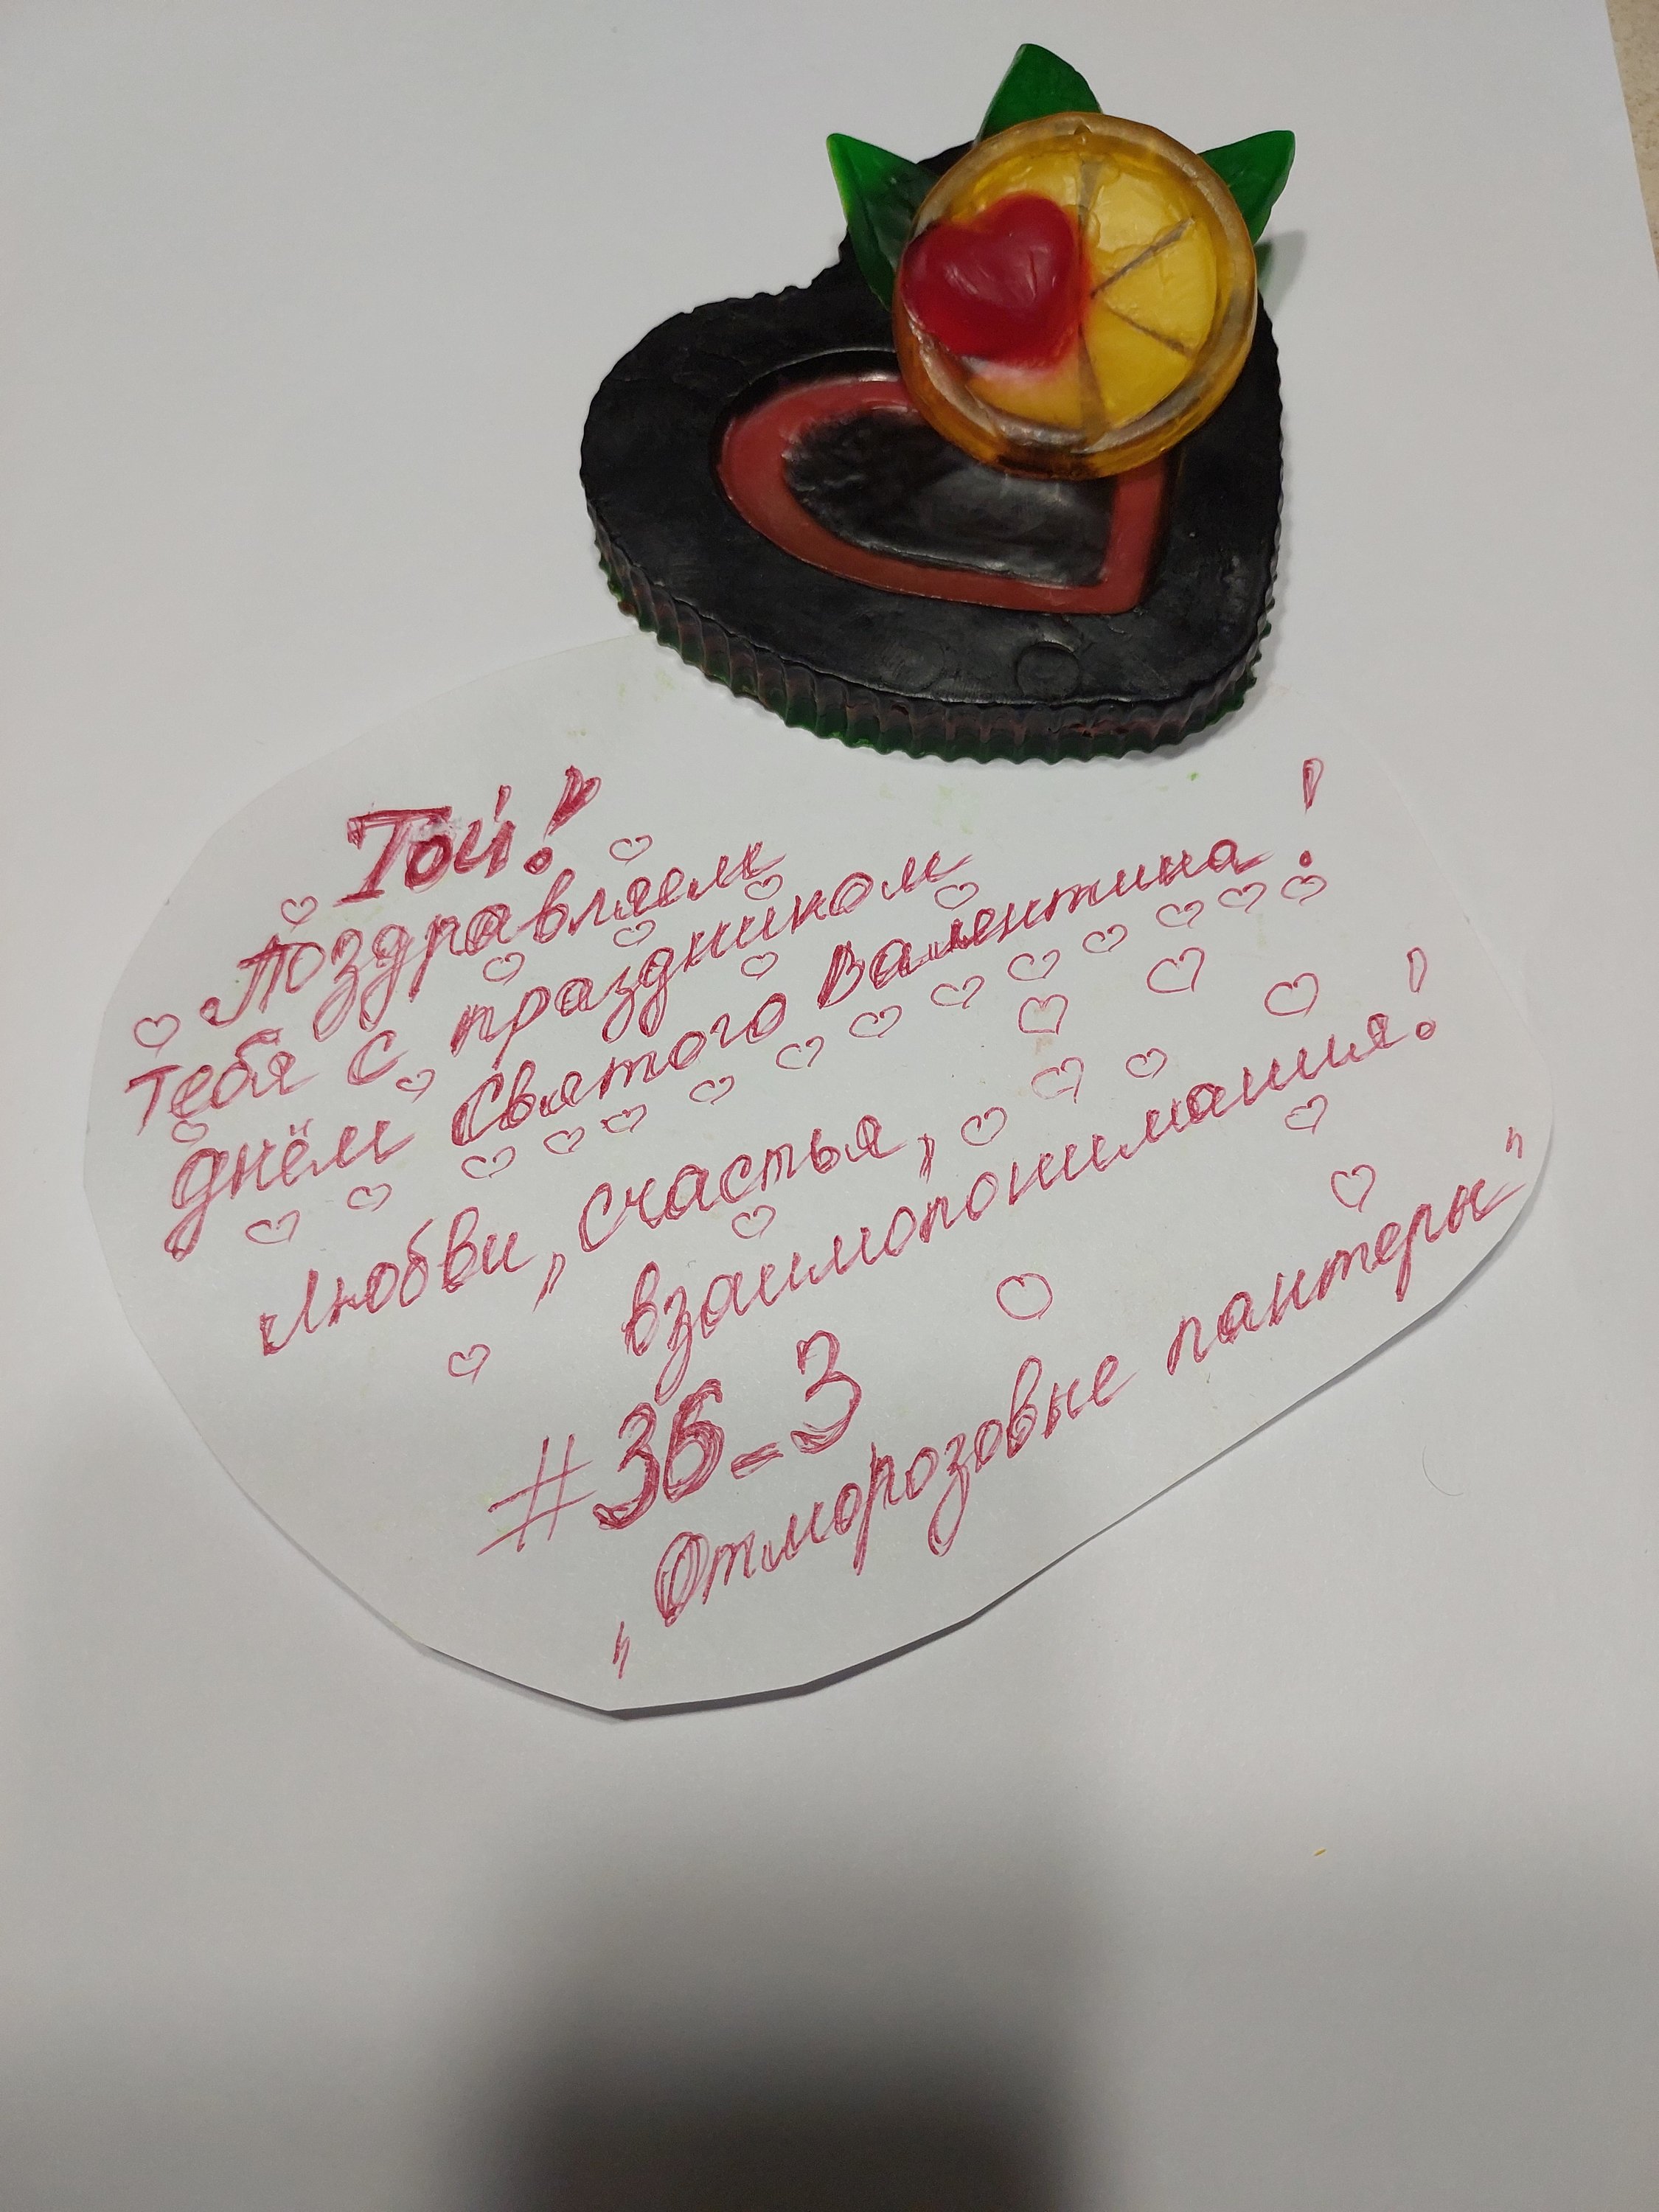 Той!
Поздравляем
тебя с праздником
днём Святого Валентина!
Любви, счастья,
взаимопонимания!
#36-3
„Отморозовые пантеры"